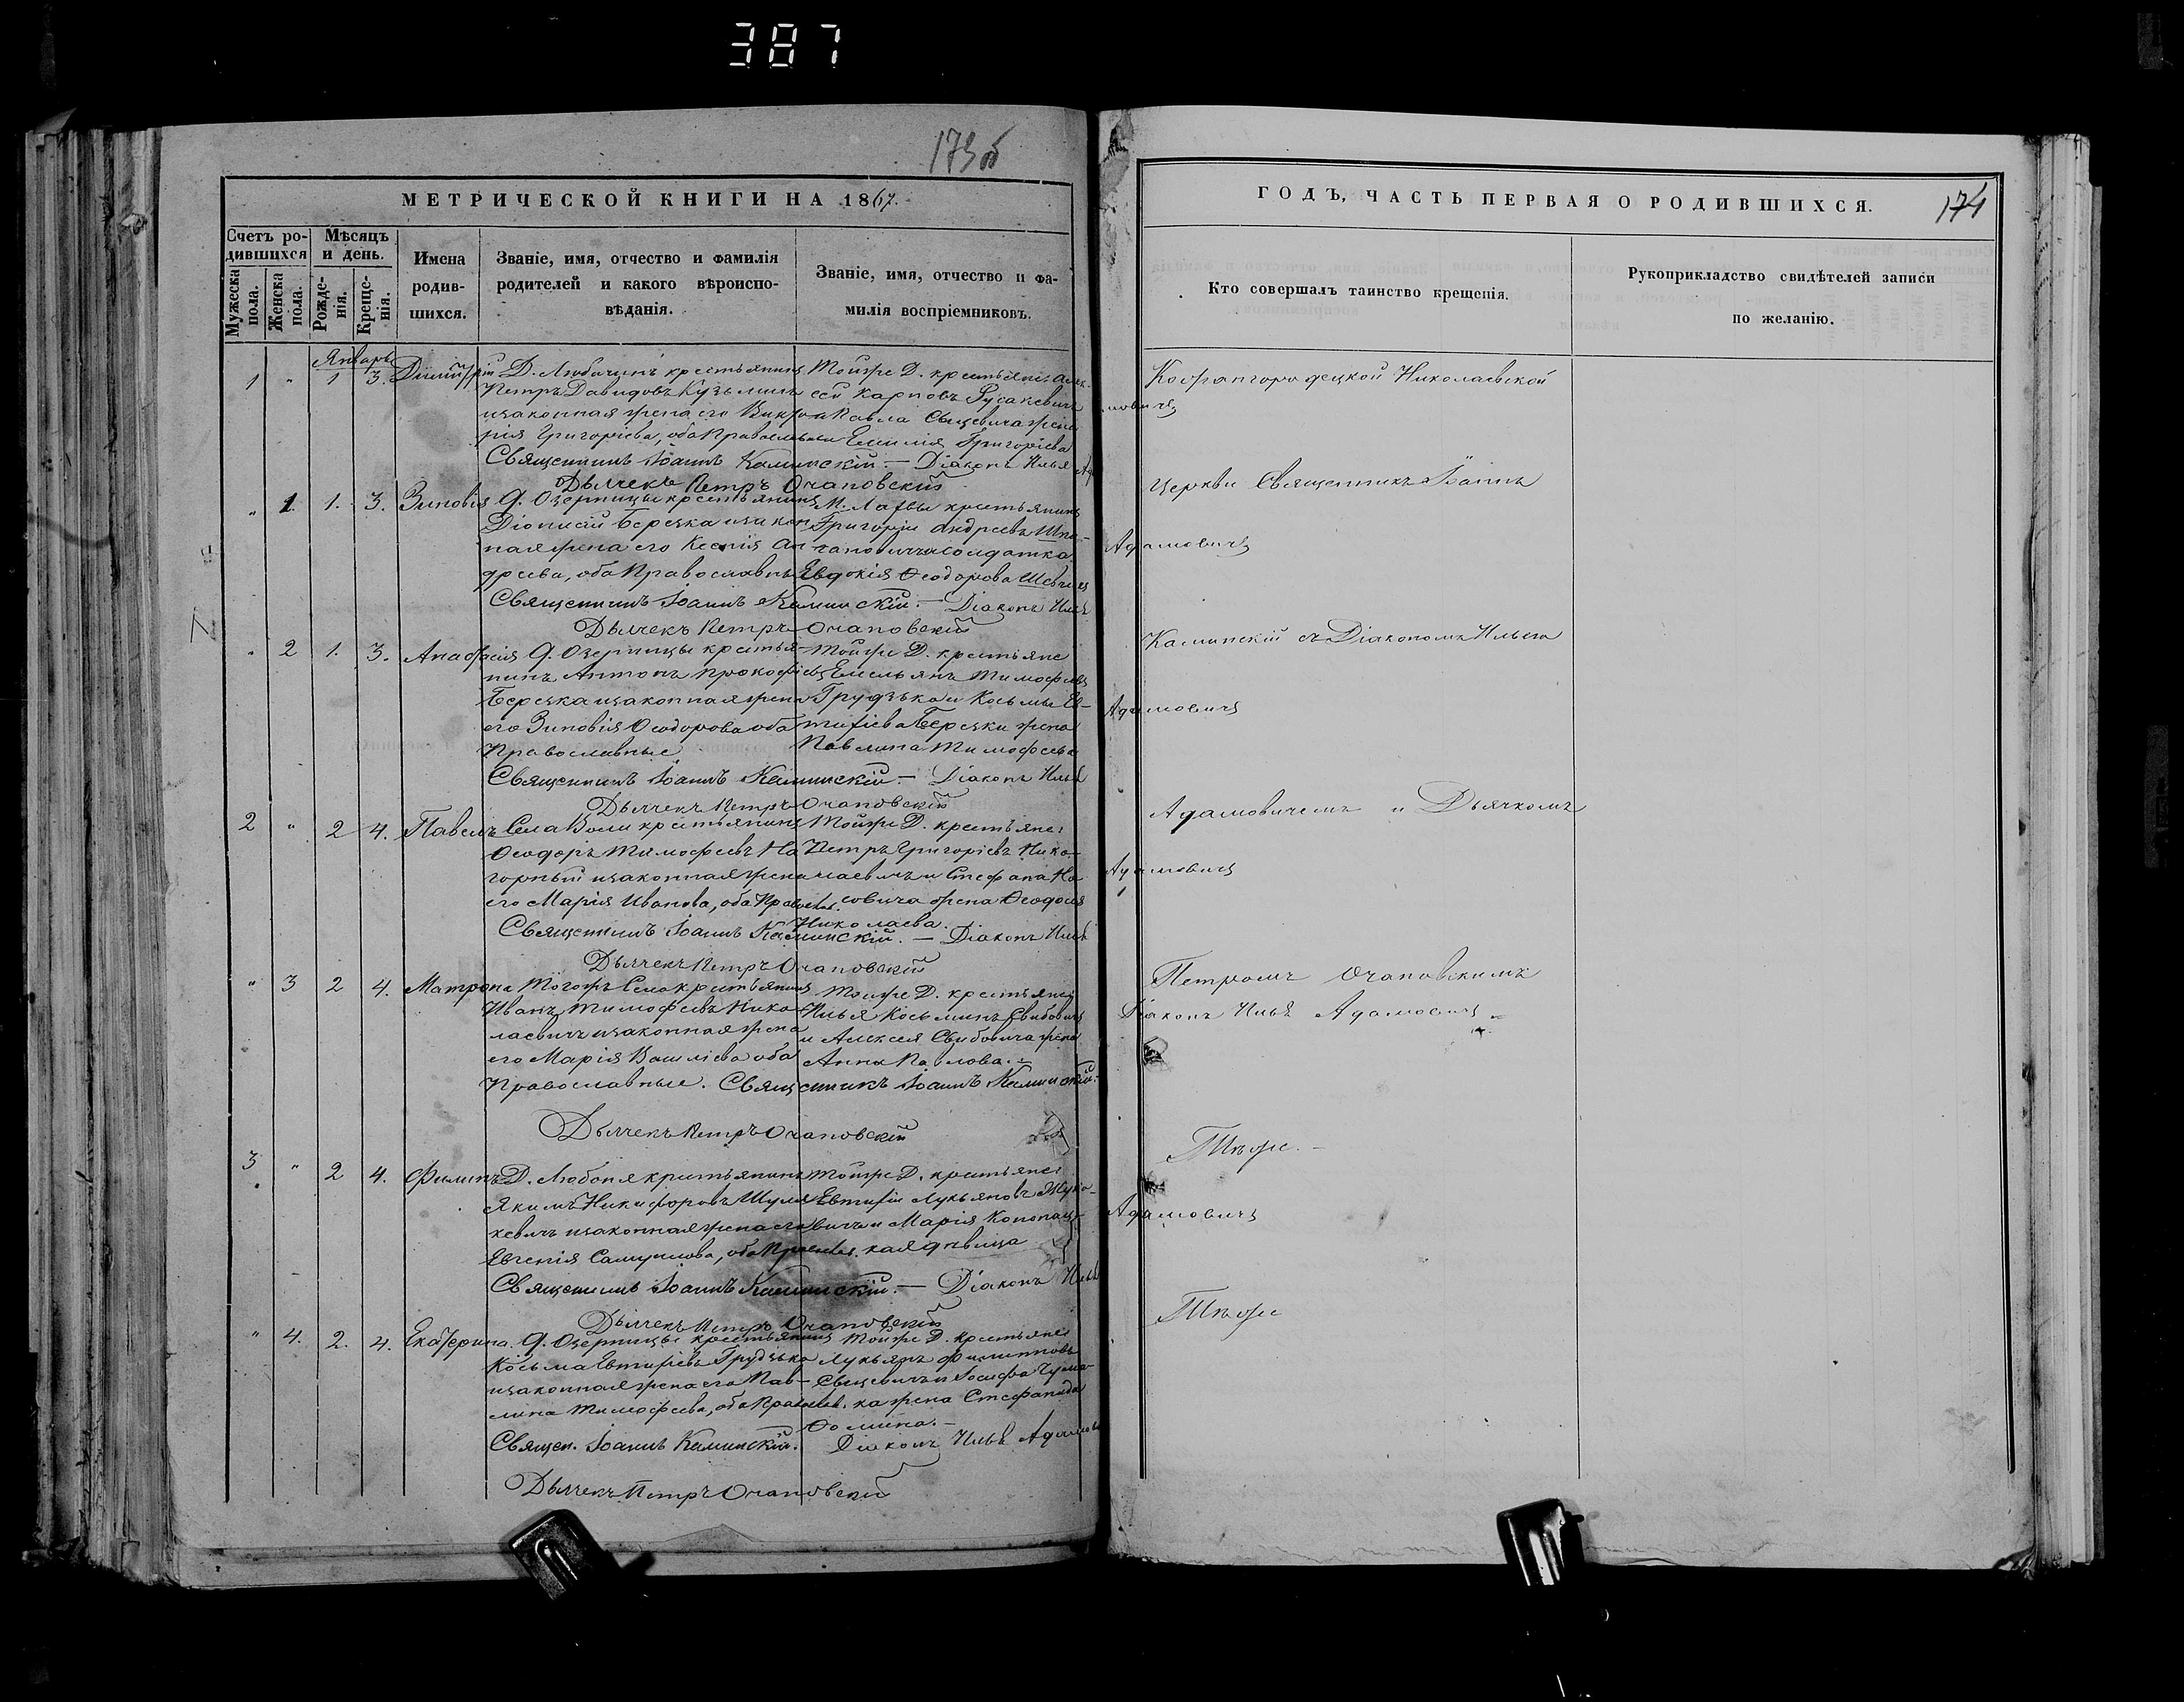 387
173об
МЕТРИЧЕСКОЙ КНИГИ НА 1867.
Счетъ ро-
дившихся
Мѣсяцъ
и день.
Мужеска
пола.
Женска
пола.
Рожде-
нія.
Креще-
нія.
Имена
родив-
шихся.
Званіе, имя, отчество и фамилія
родителей и какого вѣроиспо-
вѣданія.
Званіе, имя, отчество и фа-
милія воспріемниковъ.
Январь
1 " 1 3. Димитрій
Д. Любичинъ крестьянинъ
Петръ Давидовъ Кузьмичъ
и законная жена его Викто
рія Григоріева, оба Православные
Тойже Д. крестьяне Алек-
сей Карповъ Русакевичъ
и Павла Сыцевича жена
Емилія Григоріева
Священникъ Іоаннъ Каминскій. — Діаконъ Илья Адамовичъ
Дьячекъ Петръ Очаповскій
" 1 1. 3. Зиновія
Д. Озерницы крестьянинъ
Діонисій Березка и закон
ная жена его Ксенія Ан
дреева, оба Православные
М. Лахвы крестьянинъ
Григорій Андреевъ
солдатка
Евдокія Ѳеодорова
Священникъ Іоаннъ Каминскій. — Діаконъ Илья Адамовичъ
Дьячекъ Петръ Очаповскій
" 2 1. 3. Анастасія
Д. Озерницы крестья-
нинъ Антонъ Прокофіевъ
Березка и законная жена
его Зиновія Ѳеодорова оба
Православные
Тойже Д. крестьяне
Емельянъ Тимофеевъ
Грудзька и Косьмы Ев-
тихіева Березки жена
Павлина Тимофеева
Священникъ Іоаннъ Каминскій — Діаконъ Илья Адамовичъ
Дьячекъ Петръ Очаповскій
2 " 2 4. Павелъ
Села Воли крестьянинъ
Ѳеодоръ Тимофеевъ На
горный и законная жена
его Марія Иванова, оба Православ.
Тойже Д. крестьяне
Петръ Григоріевъ Нико-
лаевичъ и Стефана На
совича жена Ѳеодосія
Николаева.
Священникъ Іоаннъ Каминскій. — Діаконъ Илья Адамовичъ
Дьячекъ Петръ Очаповскій
" 3 2 4. Матрона
Тогожъ Села крестьянинъ
Иванъ Тимофеевъ Нико
лаевичъ и законная жена
его Марія Василіева оба
Православные.
Тойже Д. крестьяне
Илья Косьминъ Свибовичъ
и Алексея Свибовича жена
Анна Павлова.
Священникъ Іоаннъ Каминскій.
Діаконъ Илья Адамовичъ
Дьячекъ Петръ Очаповскій
3 " 2 4. Филипъ
Д. Любоня крестьянинъ
Якимъ Никифоровъ Шуля
кевичъ и законная жена его
Евгенія Самуилова, оба Православ.
Тойже Д. крестьяне
Евтихій Лукьяновъ Жуко-
вичъ и Марія Конопац-
кая дѣвица
Священникъ Іоаннъ Каминскій. — Діаконъ Илья Адамовичъ
Дьячекъ Петръ Очаповскій
" 4. 2. 4. Екатерина.
Д. Озерницы крестьянинъ
Косьма Евтихіевъ Грудзько
и законная жена его Пав-
лина Тимофеева, оба Православ.
Тойже Д. крестьяне
Лукьянъ Филипповъ
Сыцевичъ и Іосифа Чума-
ка жена Стефанида
Ѳомина.
Священ. Іоаннъ Каминскій. Діаконъ Илья Адамов
Дьячекъ Петръ Очаповскій
ГОДЪ, ЧАСТЬ ПЕРВАЯ О РОДИВШИХСЯ.
174
Кто совершалъ таинство крещенія.
Рукоприкладство свидѣтелей записи
по желанію.
Кожангородецкой Николаевской
Церкви Священникъ Іоаннъ
Каминскій съ Діакономъ Ильею
Адамовичемъ и Дьячкомъ
Петромъ Очаповскимъ
Тѣже.
Тѣже